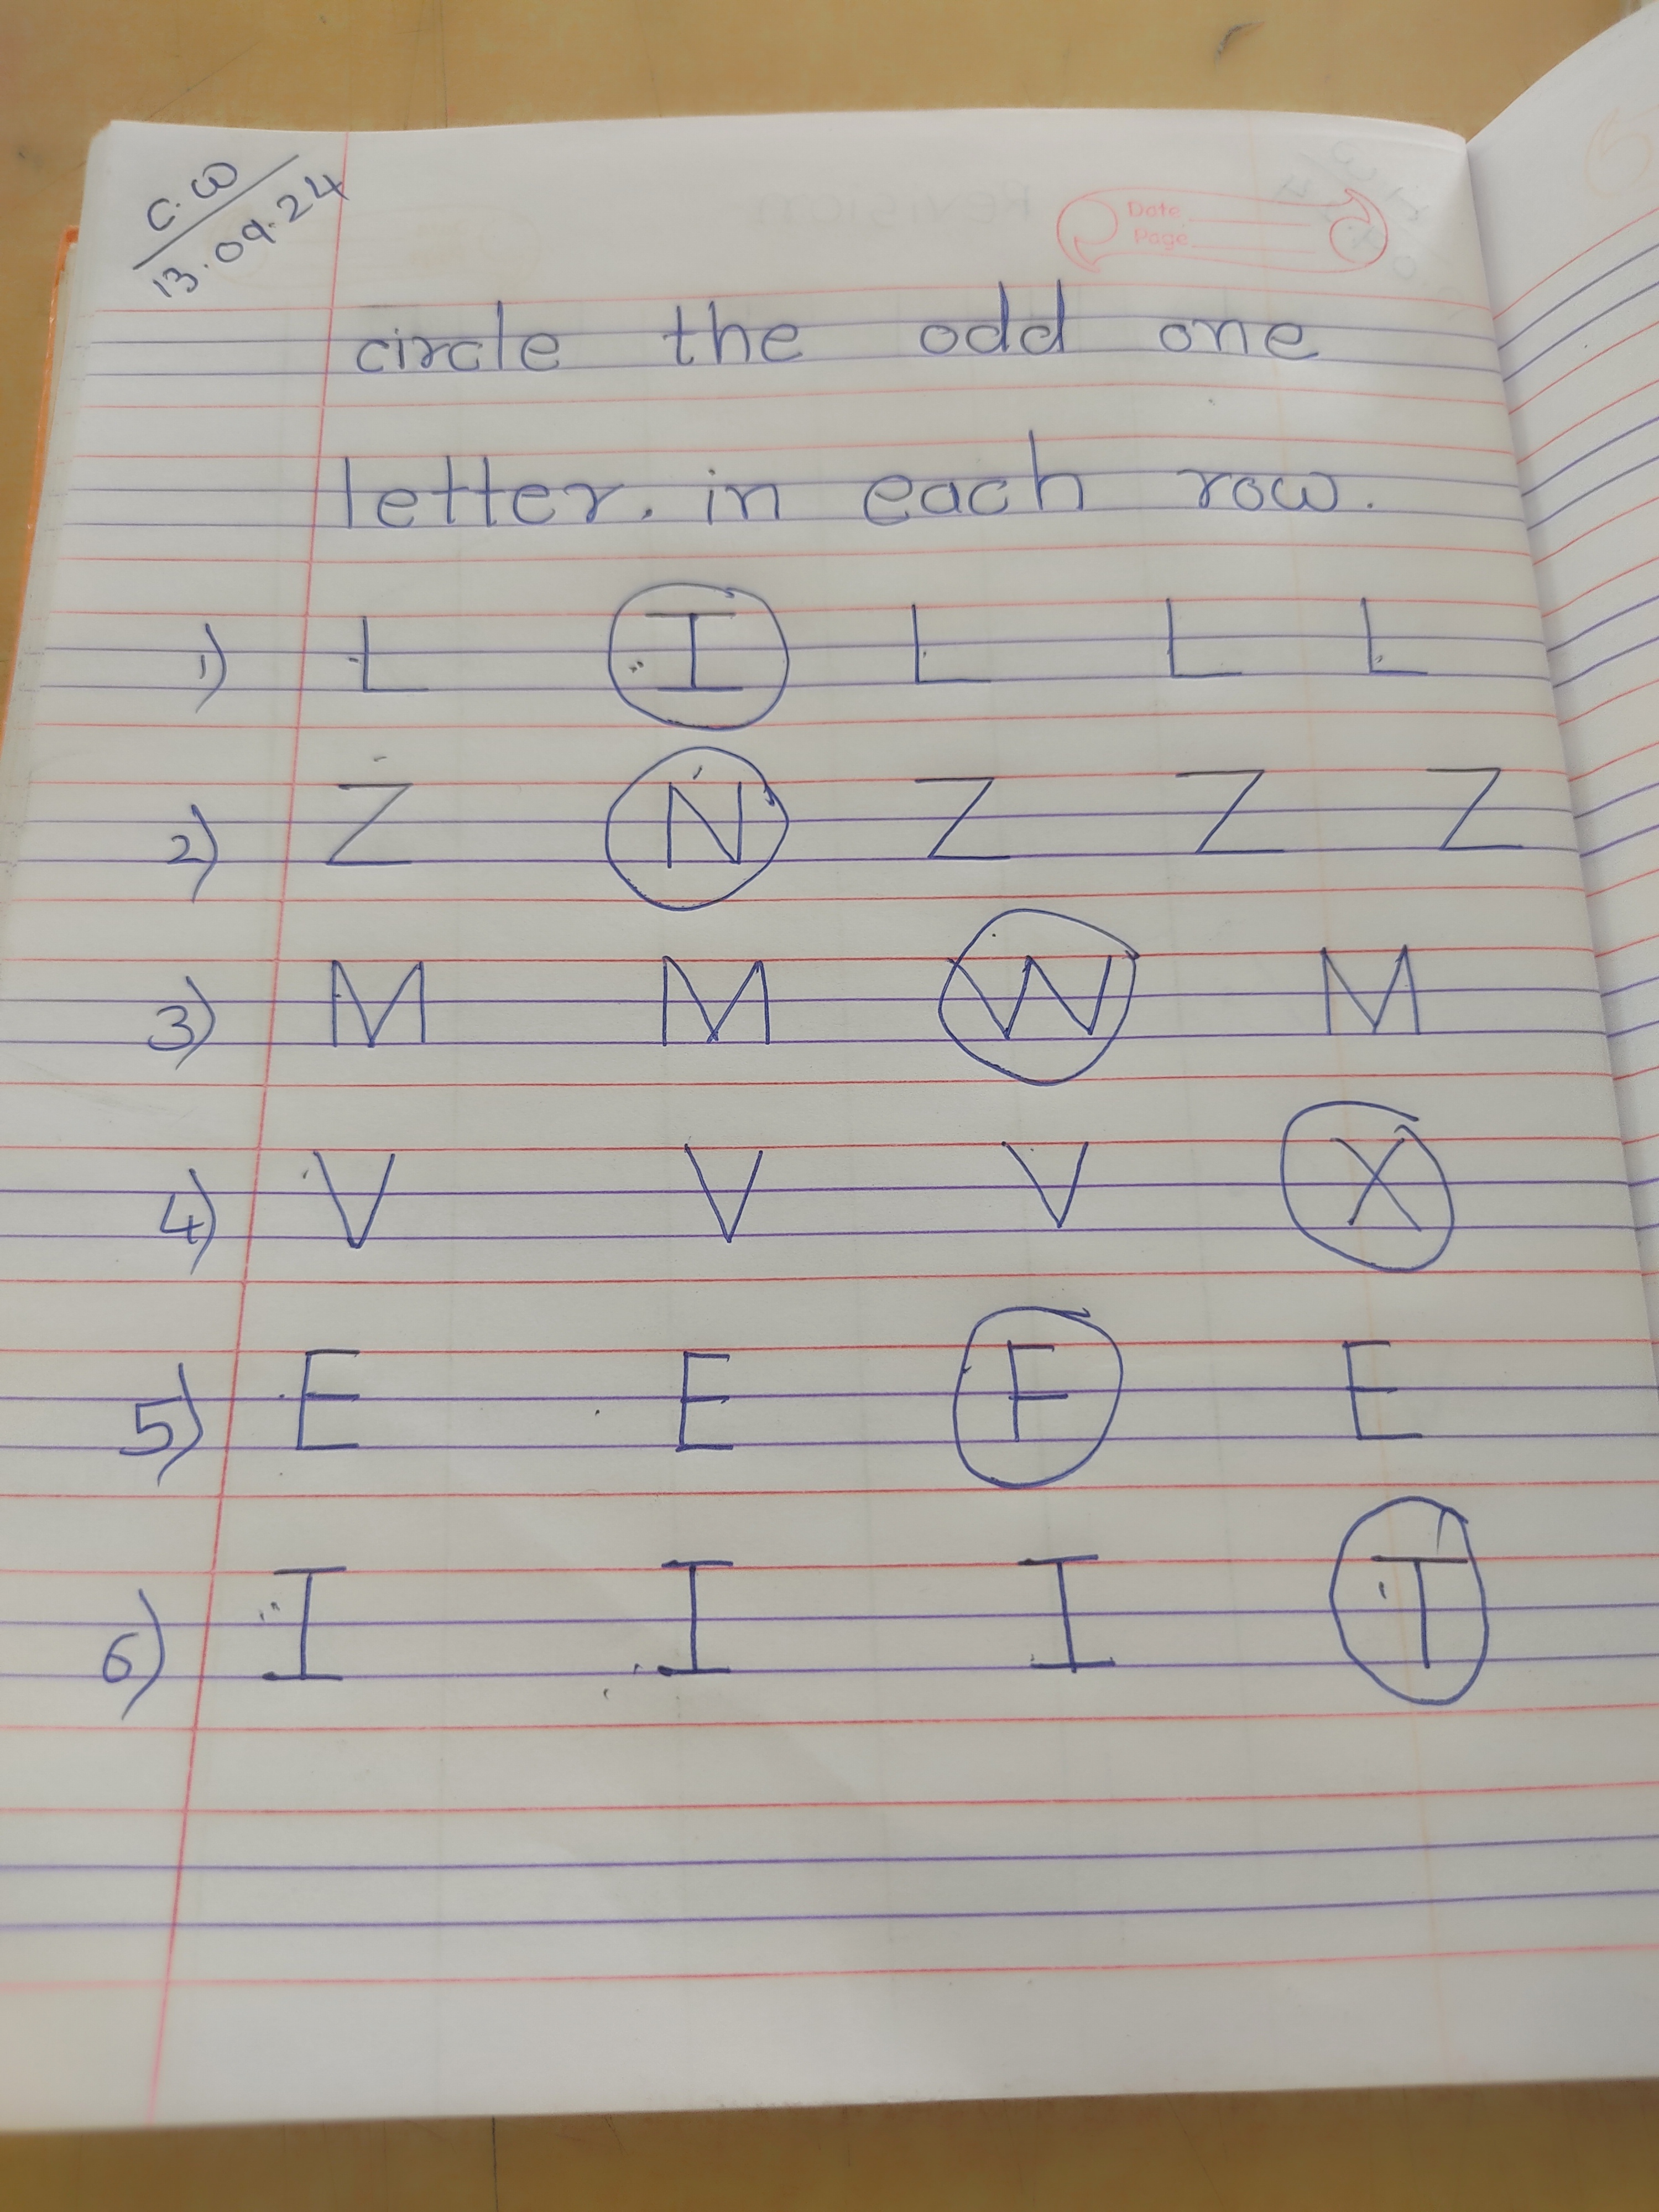 C.W
13.09.24
Date
Page
circle the odd one
letter. in each row.
1) L I L L L
2) Z N Z Z Z
3) M M W M
4) V V V X
5) E E F E
6) I I I T